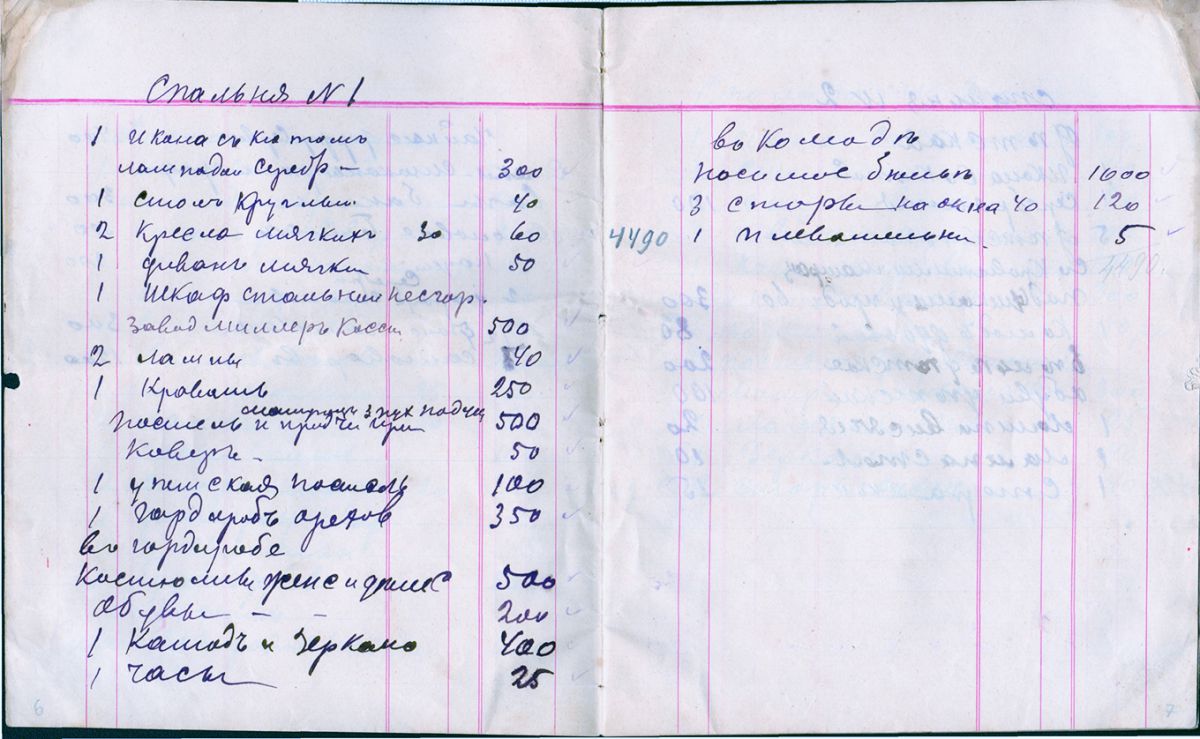 Спальня № 1
1 Икона съ киотомъ
лампадой серебр — 300
1 столъ круглый 40
2 Кресла мягкихъ 30 60
1 диванъ мягки 50
1 Шкаф стальной несгор.
завод миллеръ Касси 500
2 лампы 40
1 Кровать 250
3 пух подуш
постель и проч 500
Коверъ — 50
1 постель 100
1 Гардиробъ орехов 350
во гордиробе
Костюмы женс и 500
обувы — — 200
1 Камодъ и Зеркало 400
1 часы 25
6
во Комоди
носимое бюлье 1000
3 сторы на окна 40 120
4490 1 плевательни 5
4490.
7